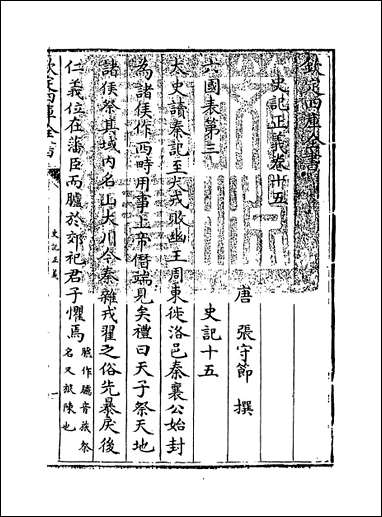 欽定四庫全書
史記正義卷十五
唐 張守節 撰
六國表第三 史記十五
太史讀秦記至犬戎敗幽王周東徙洛邑秦襄公始封
為諸侯作西畤用事上帝僭端見矣禮曰天子祭天地
諸侯祭其域内名山大川今秦雜戎翟之俗先暴戾後
仁義位在藩臣而臚於郊祀君子懼焉 臚作臚音旅祭名又旅陳也
欽定四庫全書 史記正義 一